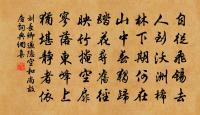 自從飛錫去
人到沃洲稀
林下期何在
山中春獨歸
踏花尋舊徑
映竹掩空扉
寥落東峰上
猶堪靜者依
劉長卿過隱空和尚故